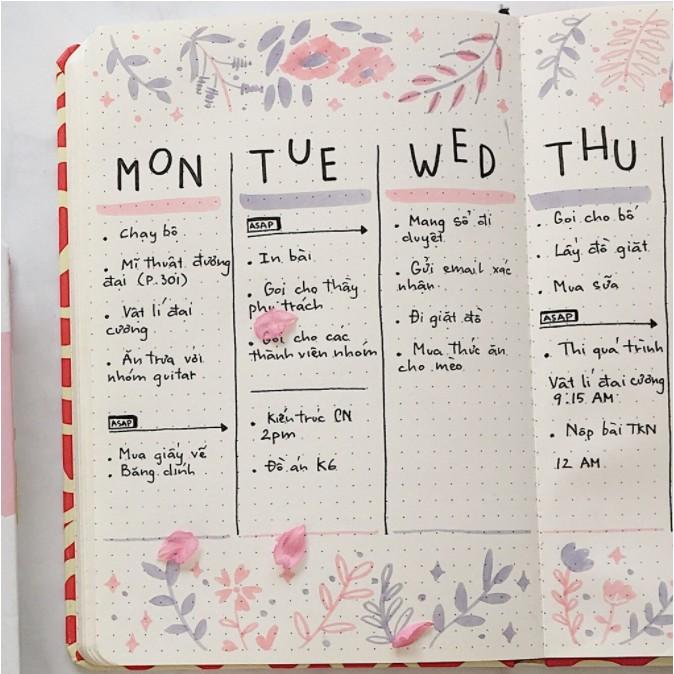 MON
. Chạy bộ
. Mĩ thuật đương
đại (P.301)
. Vật lí đại
cương
. Ăn trưa với
nhóm guitar
ASAP
. Mua giấy vẽ
. Băng dính
TUE
ASAP
. In bài
. Gọi cho thầy
phụ trách
. Gọi cho các
thành viên nhóm
. Kiến trúc CN
2pm
. Đồ án K6
WED
. Mang sổ đi
duyệt
. Gửi email xác
nhận
. Đi giặt đồ
. Mua thức ăn
cho mèo
THU
. Gọi cho bố
. Lấy đồ giặt
. Mua sữa
ASAP
. Thi quá trình
Vật lí đại cương
9:15 AM
. Nộp bài TKN
12 AM